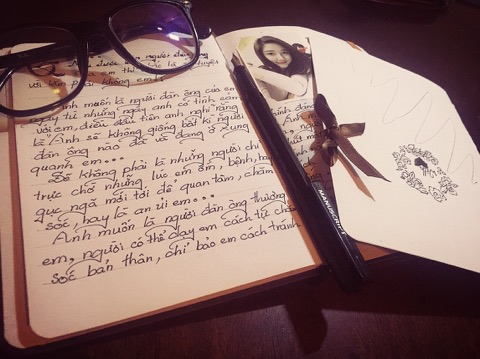 được người
em thì
với bản phải không em!
Anh muốn là người đàn ông của em
ngay từ những ngày anh có tình cảm
với em, điều đầu tiên anh nghĩ rằng
là "Anh sẽ không giống bất kì người
đàn ông nào đã và đang ở xung
quanh em...
Để không phải là những người chỉ
trực chờ những lúc em ốm, bệnh, hay
gục ngã mới tới để quan tâm, chăm
sóc, hay là an ủi em...
Anh muốn là người đàn ông thương
em, người có thể dạy em cách tự chăm
sóc bản thân, chỉ bảo em cách tránh
MANUSCRIPT